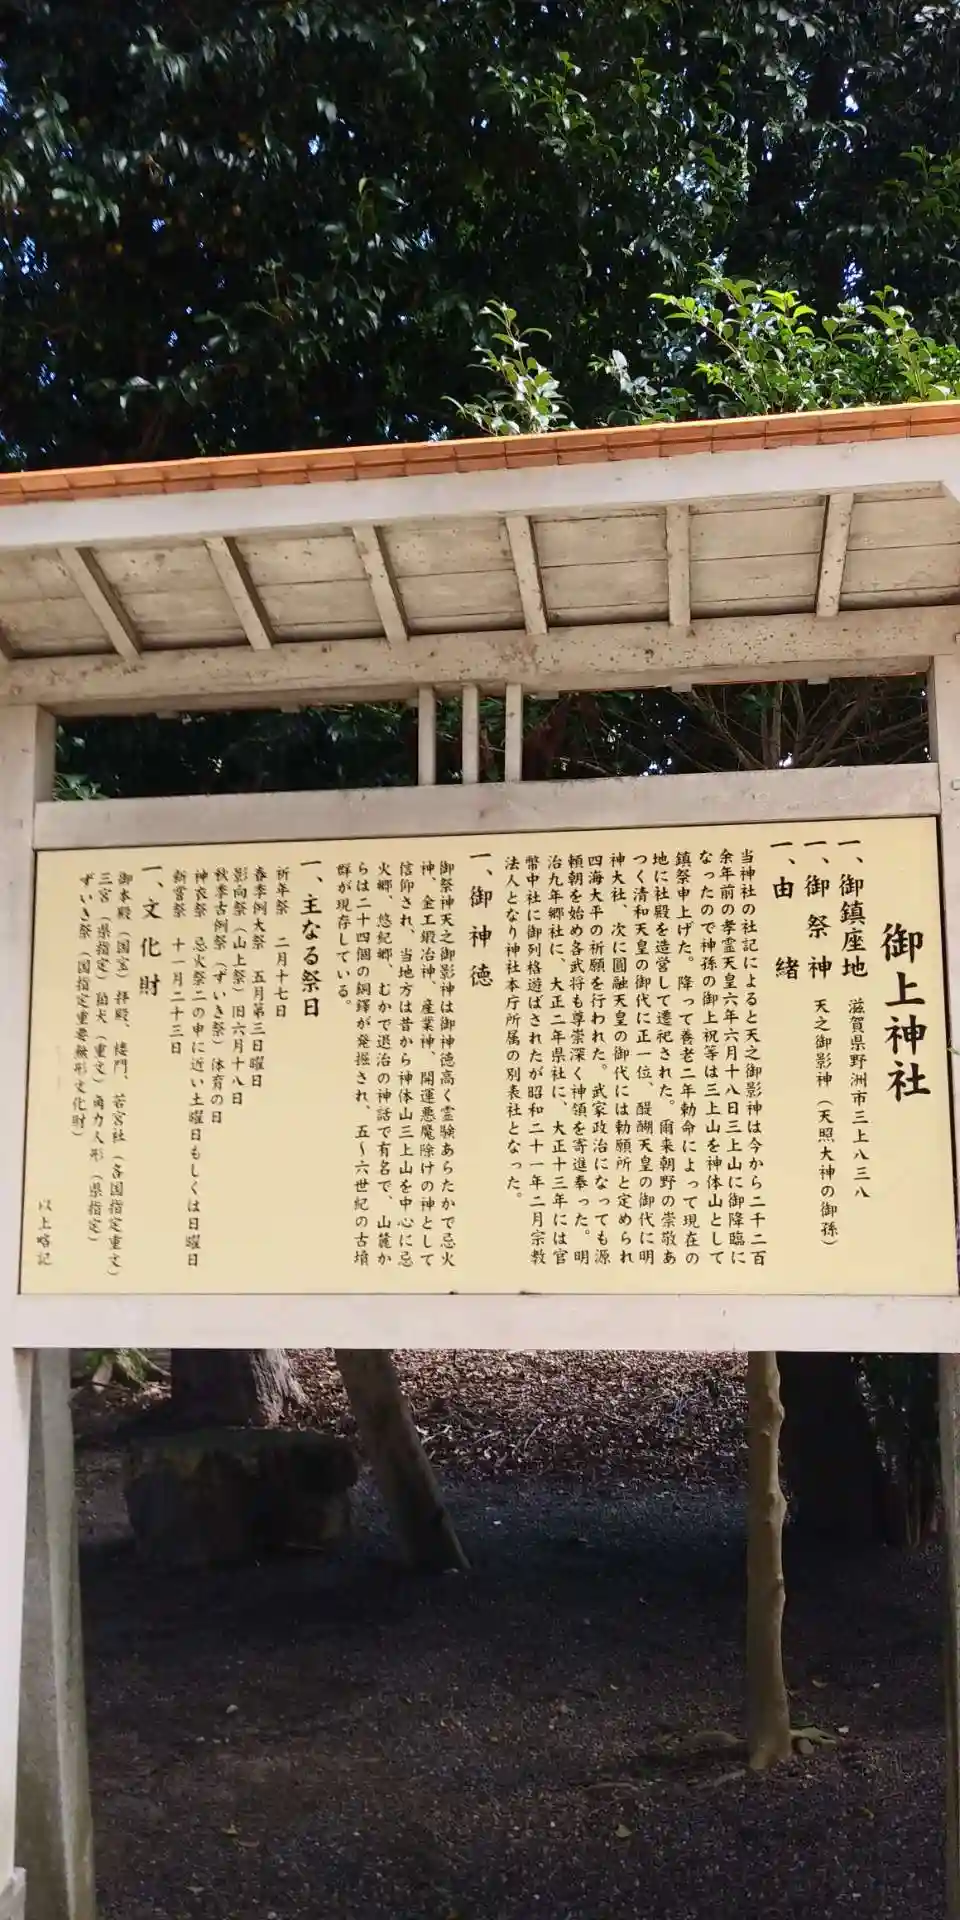 御上神社
一、御鎮座地 滋賀県野洲市三上八三八
一、御祭神 天之御影神（天照大神の御孫）
一、由緒
当神社の社記によると天之御影神は今から二千二百
余年前の孝霊天皇六年六月十八日三上山に御降臨に
なったので神孫の御上祝等は三上山を神体山として
鎮祭申上げた。降って養老二年勅命によって現在の
地に社殿を造営して遷祀された。爾来朝野の崇敬あ
つく清和天皇の御代に正一位、醍醐天皇の御代に明
神大社、次に圓融天皇の御代には勅願所と定められ
四海大平の祈願を行われた。武家政治になっても源
頼朝を始め各武将も尊崇深く神領を寄進奉った。明
治九年郷社に、大正二年県社に、大正十三年には官
幣中社に御列格遊ばされたが昭和二十一年二月宗教
法人となり神社本庁所属の別表社となった。
一、御神徳
御祭神天之御影神は御神徳高く霊験あらたかで忌火
神、金工鍛冶神、産業神、開運悪魔除けの神として
信仰され、当地方は昔から神体山三上山を中心に忌
火郷、悠紀郷、むかで退治の神話で有名で、山麓か
らは二十四個の銅鐸が発掘され、五～六世紀の古墳
群が現存している。
一、主なる祭日
祈年祭 二月十七日
春季例大祭 五月第三日曜日
影向祭（山上祭）旧六月十八日
秋季古例祭（ずいき祭）体育の日
神衣祭 忌火祭二の申に近い土曜日もしくは日曜日
新嘗祭 十一月二十三日
一、文化財
御本殿（国宝）拝殿、楼門、若宮社（各国指定重文）
三宮（県指定）狛犬（重文）角力人形（県指定）
ずいき祭（国指定重要無形文化財）
以上略記